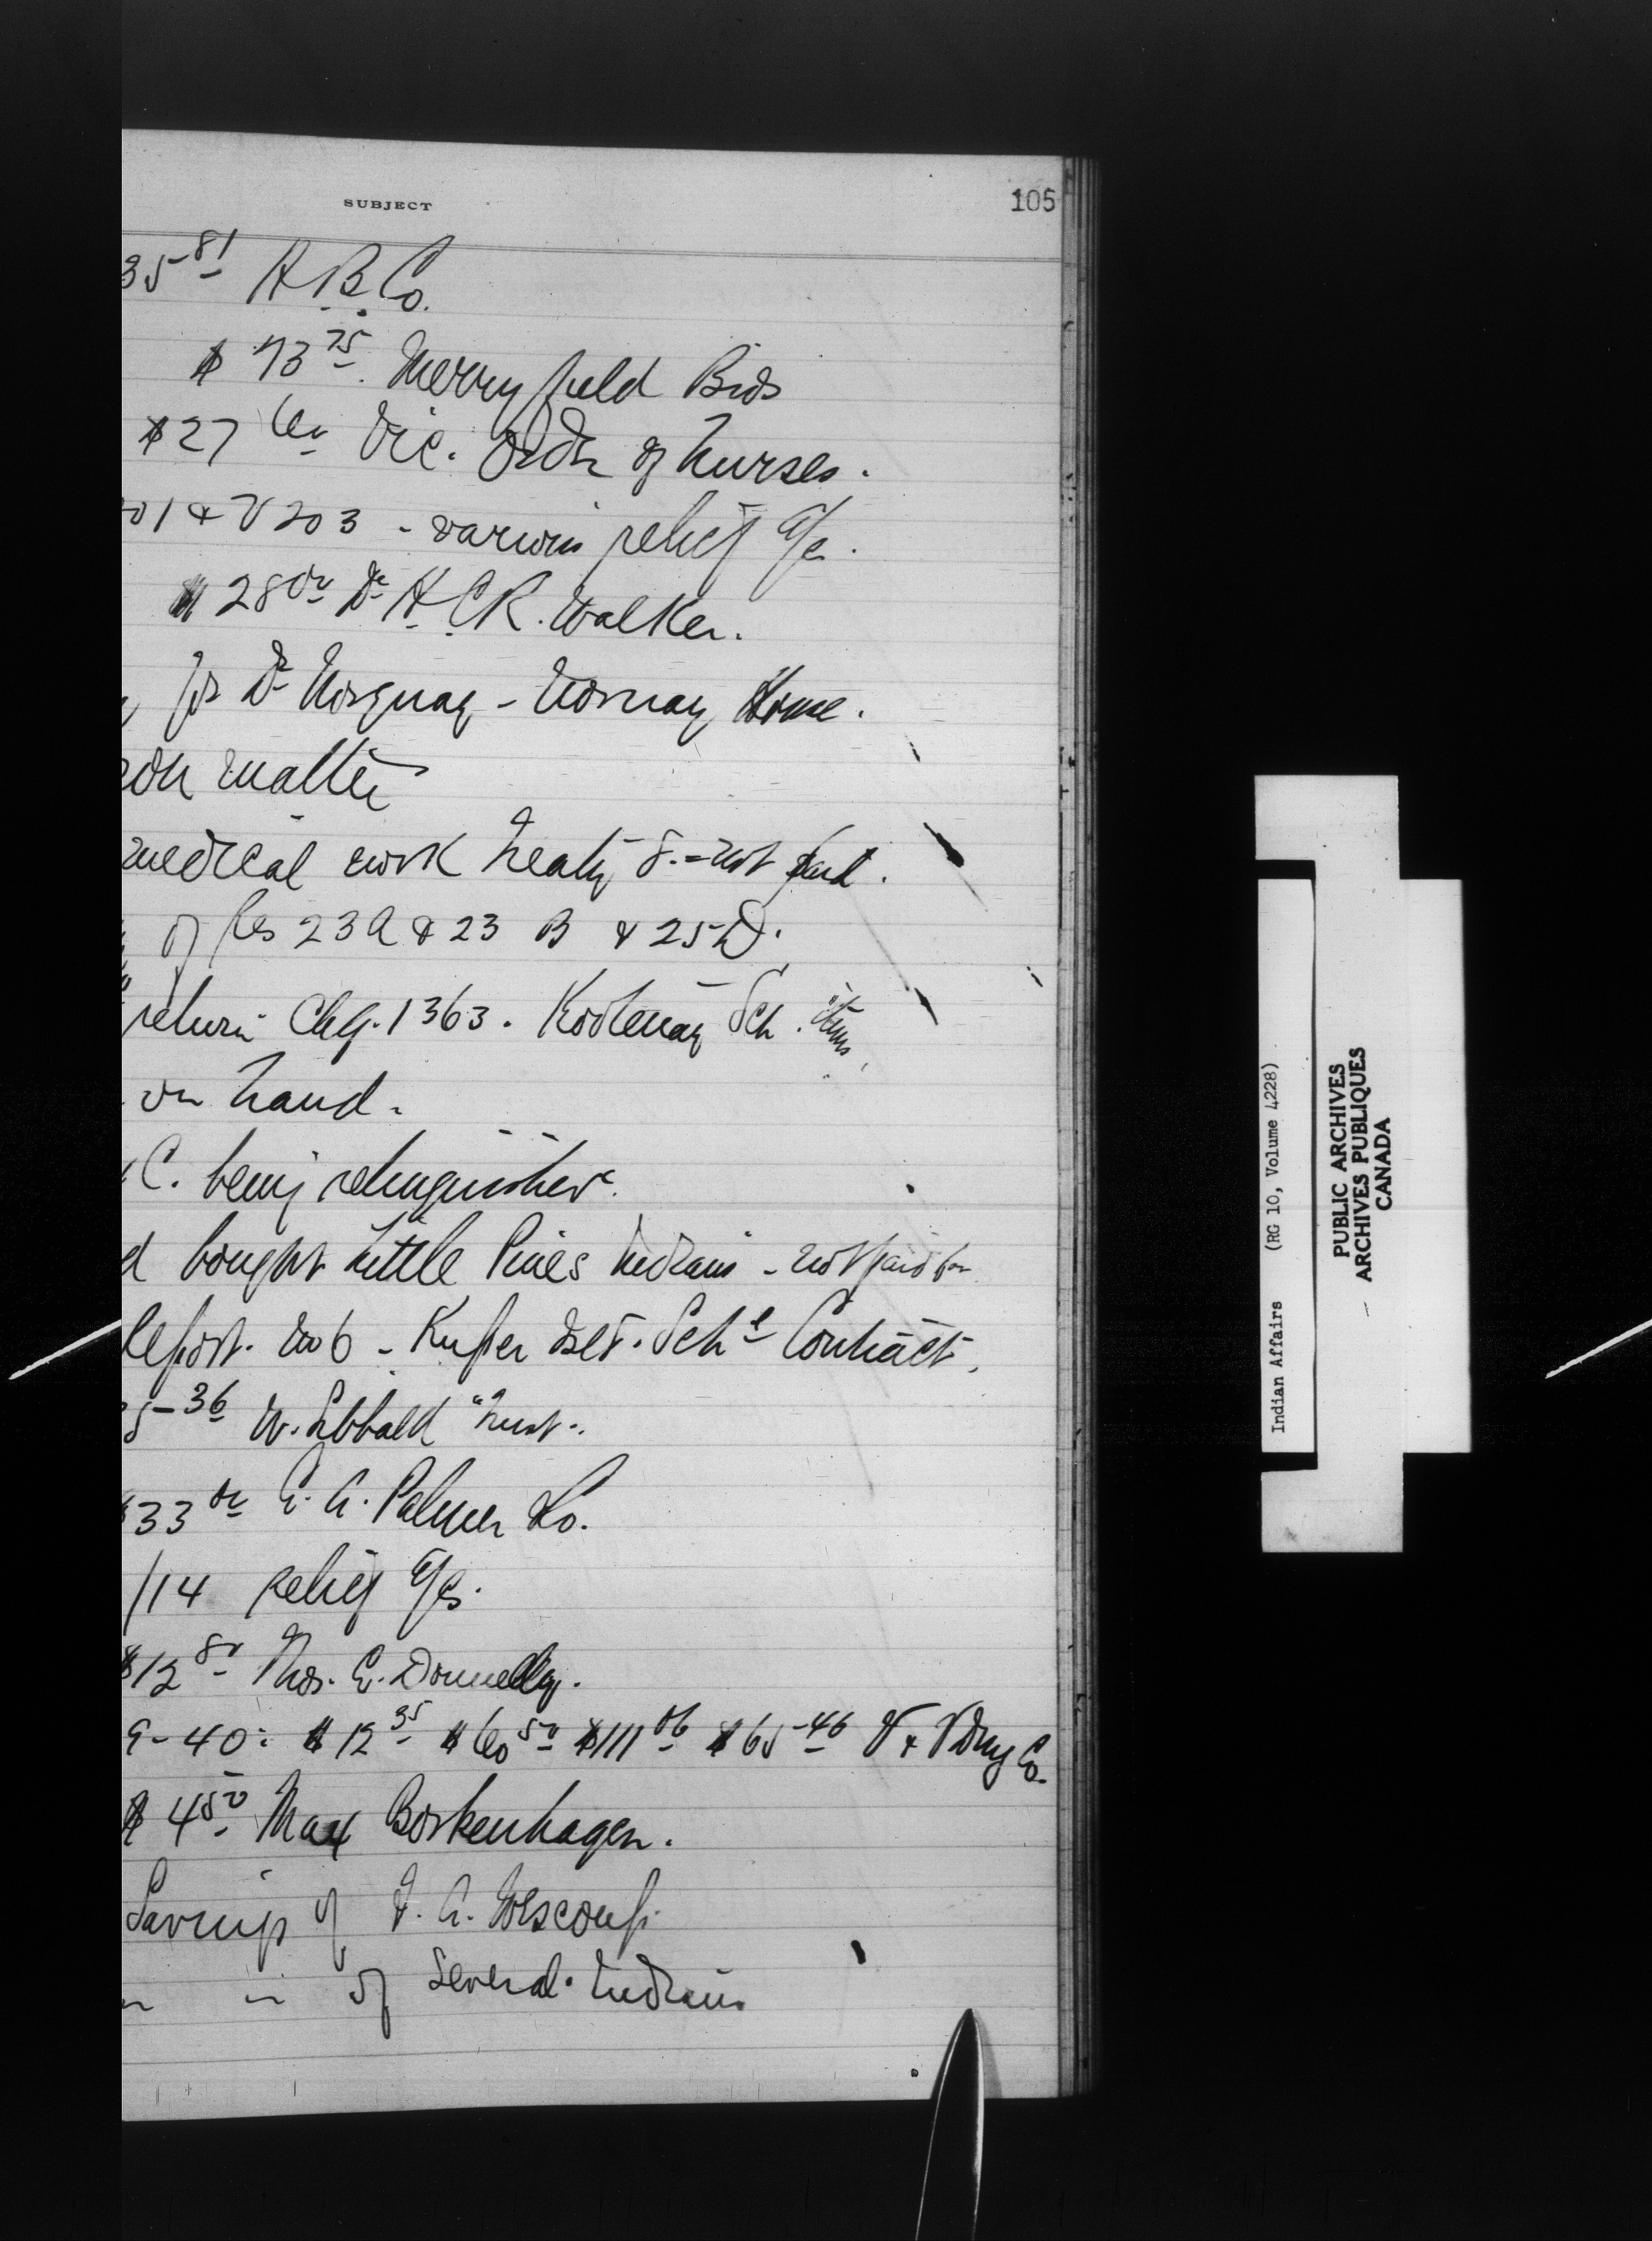 SUBJECT
105
35 81 H.B. Co.
$ 73 75 Merryfield Bros
$27 60 Vic. Order of Nurses.
01 & V 203 - various relief a/c.
28 00 Dr H.C.R. Walker.
for Dr Norquay - Norway House.
matter
medical work Treaty 8. - not paid.
of Res 23A & 23 B & 25D.
return Chq. 1363. Kootenay Sch. items
on hand.
C. being relinquished.
d bought Little Pines Indians - not paid for
Report. No 6 - Kuper Isld. Schl Contract.
5 36 W. Sibbald Trust.
33 00 E. A. Palmer Co.
/14 relief a/cs.
$12 80 Thos. E. Donnelly.
9-40: $12 35 $60 50 $111 06 $65 46 V & V Drug Co.
$ 4 50 Max Borkenhagen.
Savings of
" " of several Indians
Indian Affairs (RG 10, Volume 4228)
PUBLIC ARCHIVES
ARCHIVES PUBLIQUES
CANADA